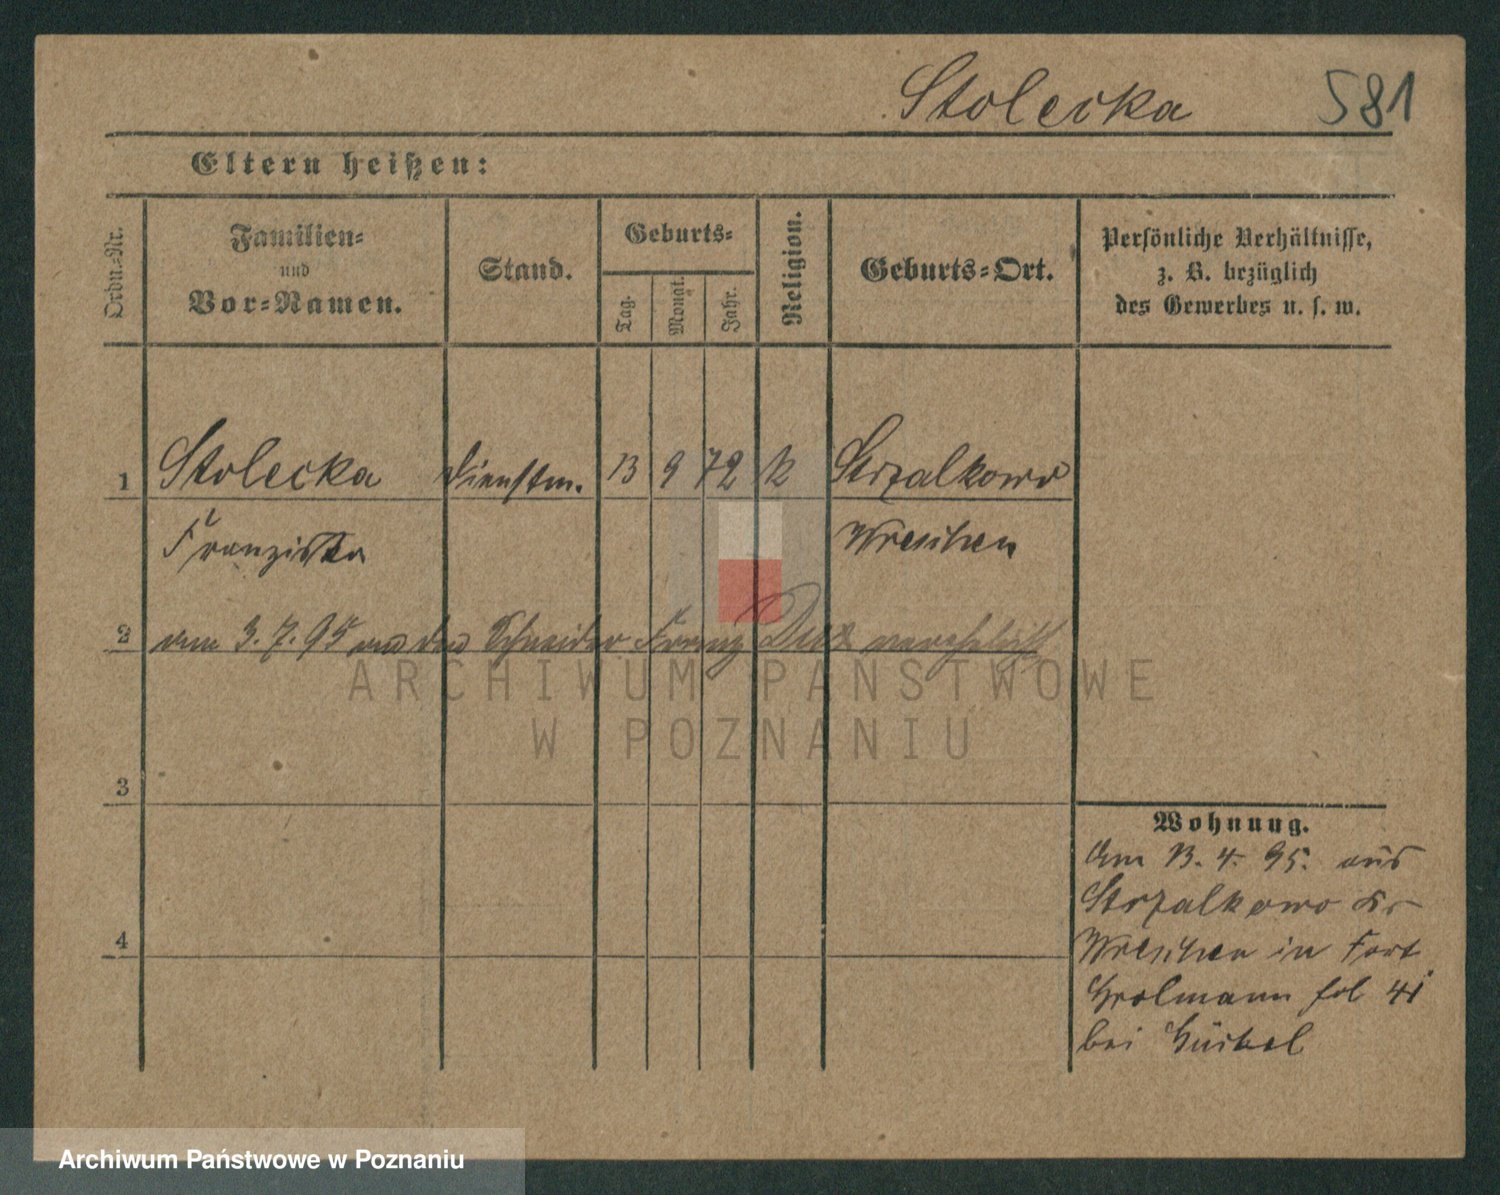 Stolecka 581
Eltern heißen:
Ordn.-Nr.
Familien-
und
Vor-Namen.
Stand.
Geburts-
Tag.
Monat.
Jahr.
Religion.
Geburts-Ort.
Persönliche Verhältnisse,
z. B. bezüglich
des Gewerbes u. s. w.
1 Stolecka Dienstm. 13 9 72 k Strzalkowo
Franziska Wreschen
2 am 3.7.95 den Schneider Franz verehelicht
ARCHIWUM PAŃSTWOWE
W POZNANIU
3
4
Wohnung.
Am 13.4.95. aus
Strzalkowo Kr
Wreschen in Fort
Grolmann fol 41
bei
Archiwum Państwowe w Poznaniu